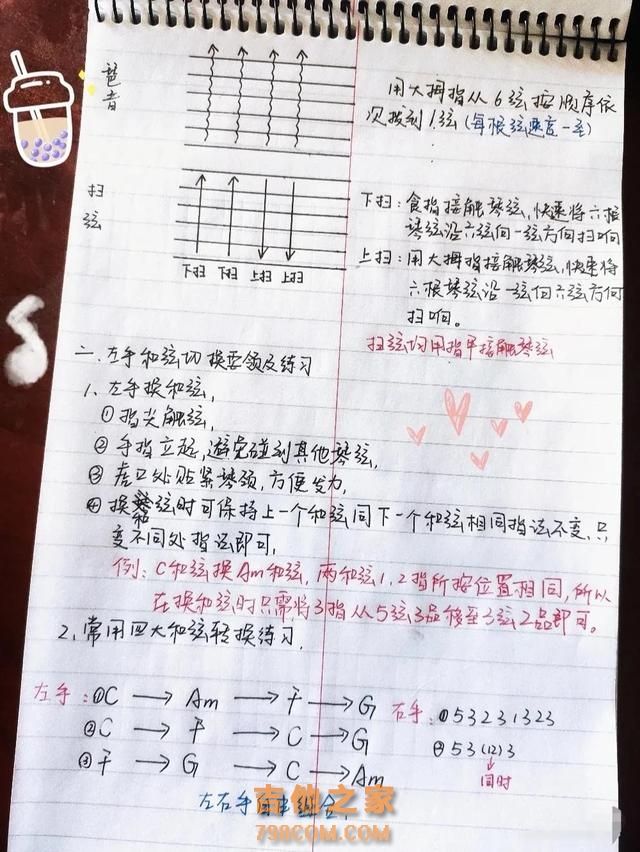 琶音
用大拇指从6弦按顺序依
次拨到1弦(每根弦速度一至)
扫弦
下扫 下扫 上扫 上扫
下扫:食指接触琴弦,快速将六根
琴弦沿六弦向一弦方向扫响
上扫:用大拇指接触琴弦,快速将
六根琴弦沿一弦向六弦方向
扫响。
扫弦均用指甲接触琴弦
二、左手和弦切换要领及练习
1、左手换和弦,
①指尖触弦,
②手指立起,避免碰到其他琴弦,
③虎口处贴紧琴颈,方便发力,
④换和弦时可保持上一个和弦同下一个和弦相同指法不变,只
变不同处指法即可,
例:C和弦换Am和弦,两和弦1,2指所按位置相同,所以
在换和弦时只需将3指从5弦3品移至3弦2品即可。
2、常用四大和弦转换练习,
左手:①C → Am → F → G
②C → F → C → G
③F → G → C → Am
右手:①53231323
②53(12)3
同时
左右手自由组合,
吉他之家
798COM.COM